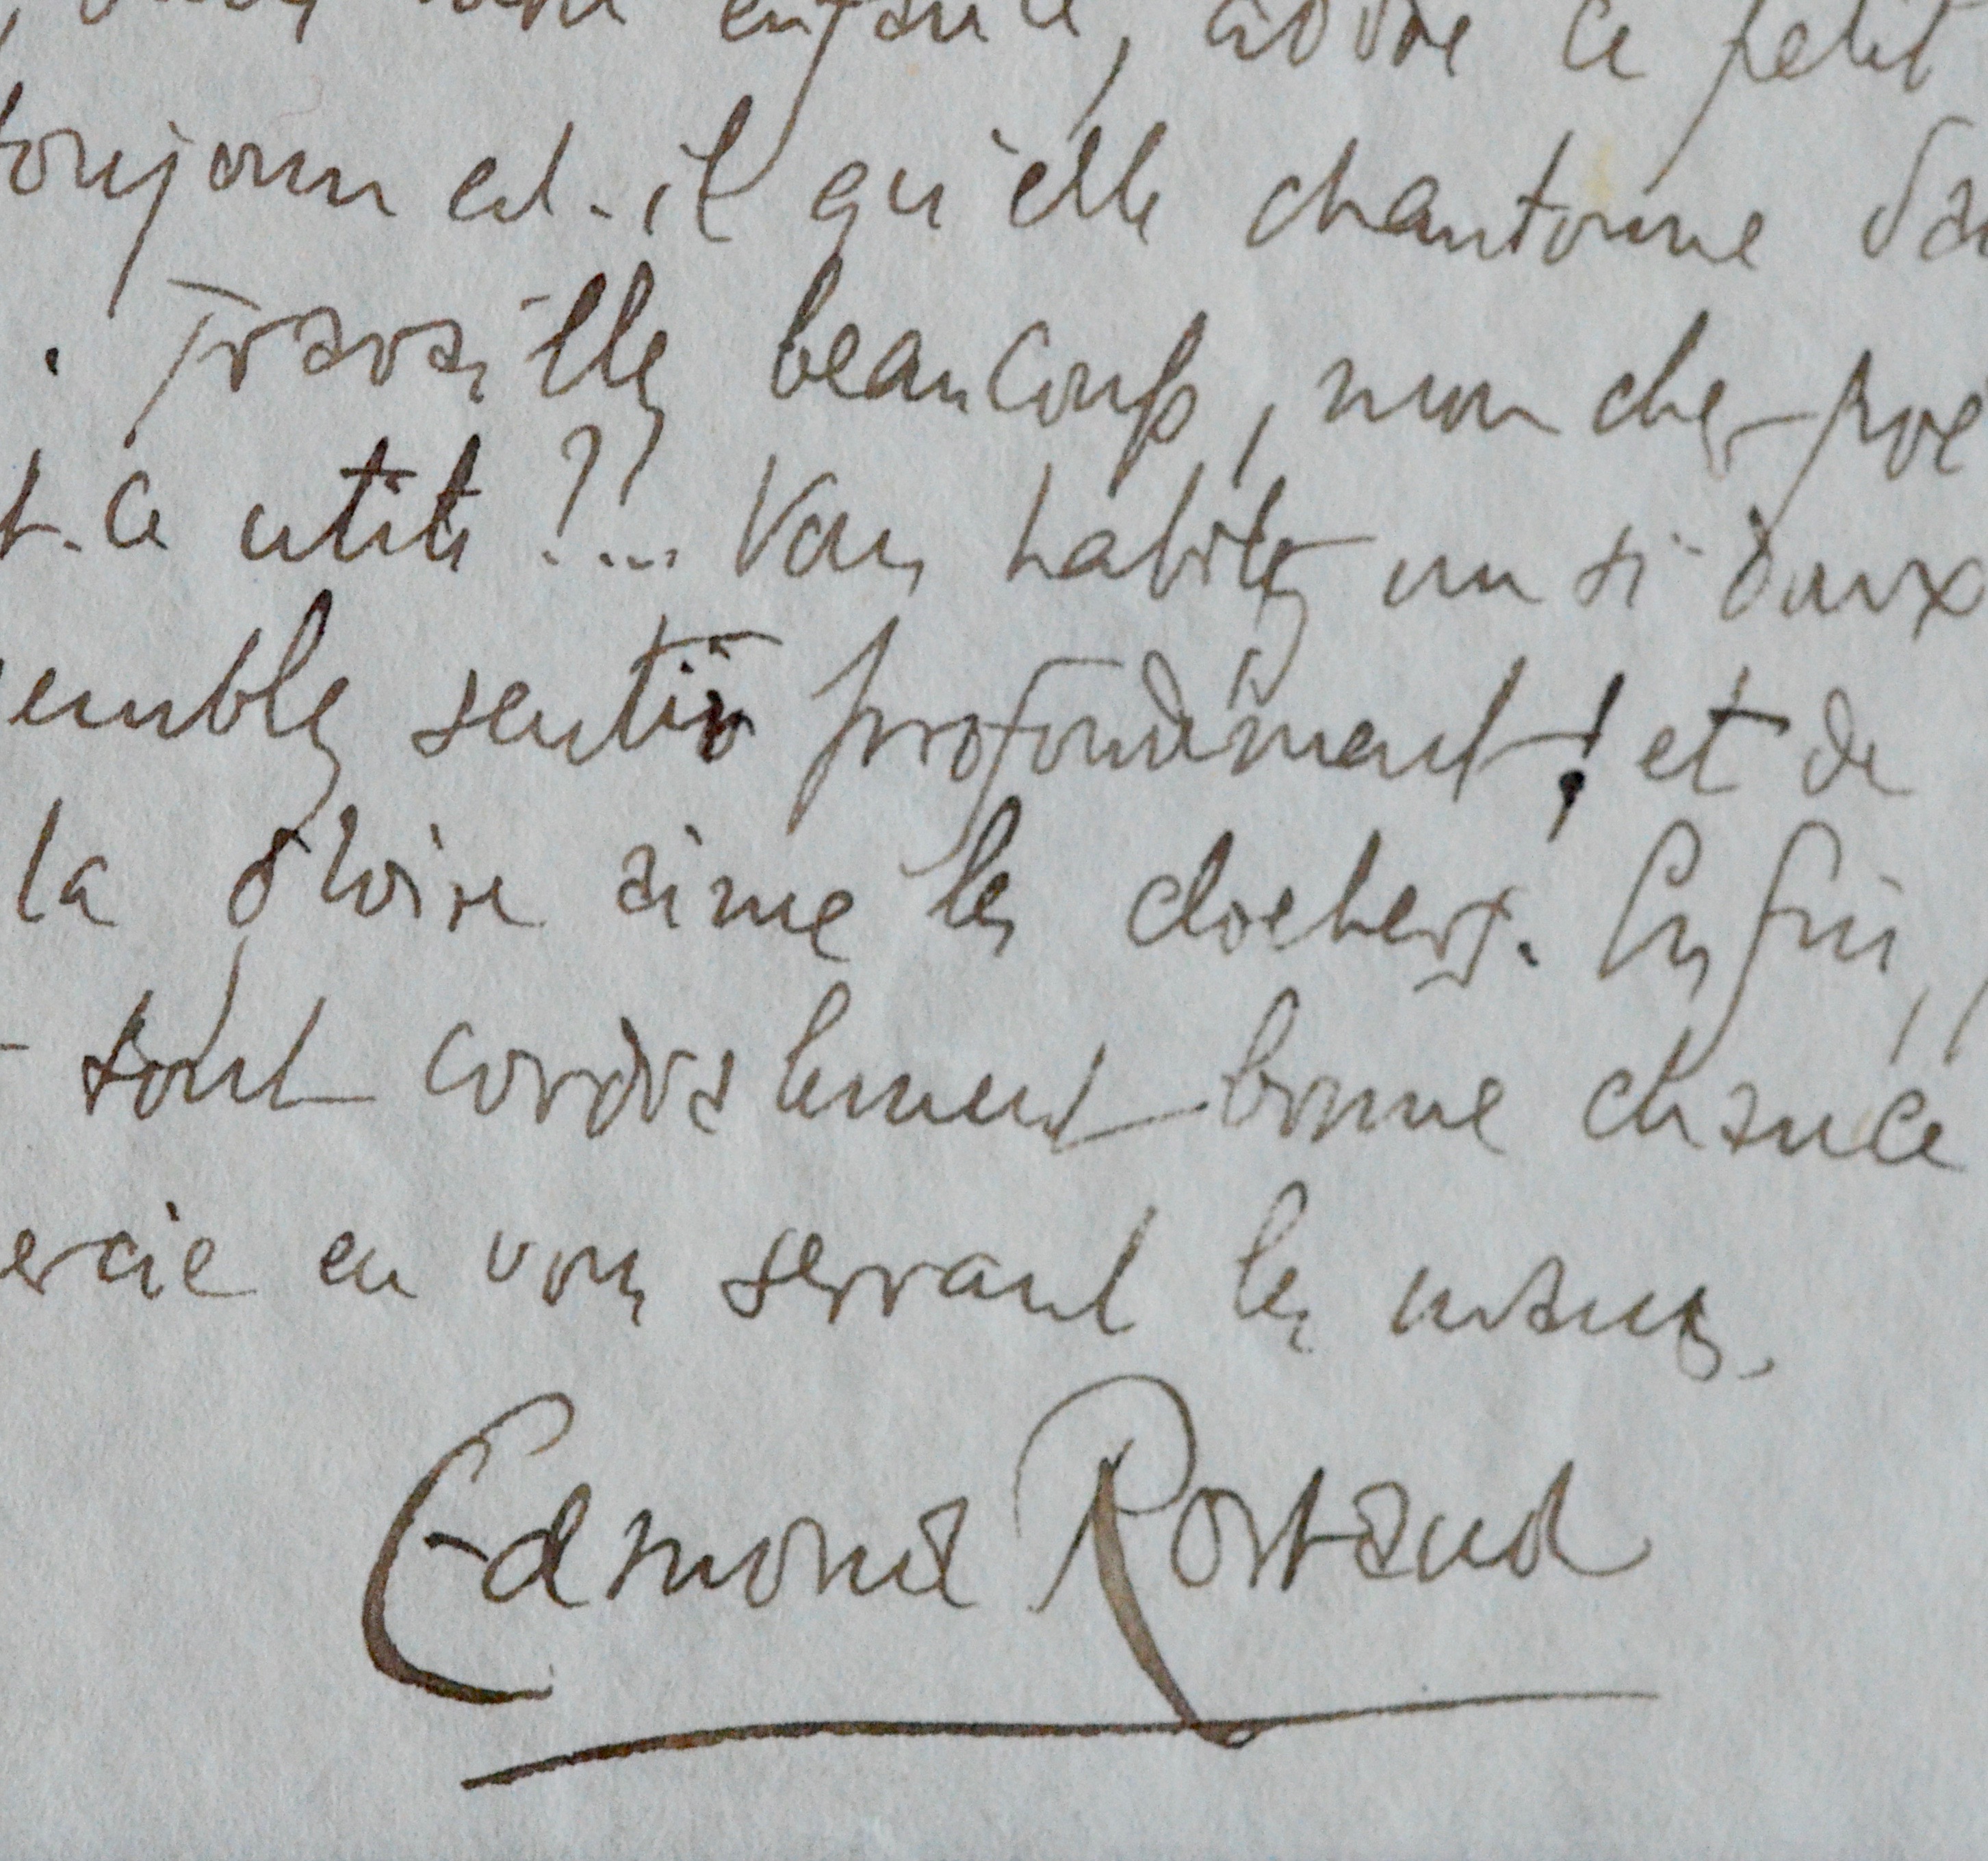 enfance, adore ce petit
toujours est-il qu'elle chantonne da
. Travaillez beaucoup, mon cher poë
t-ce utile ?!... Vous habitez un si doux
semblez sentir profondément ! et de
la gloire aime les clochers. Enfin,
tout cordialement bonne chance
ercie en vous serrant les mains.
Edmond Rostand